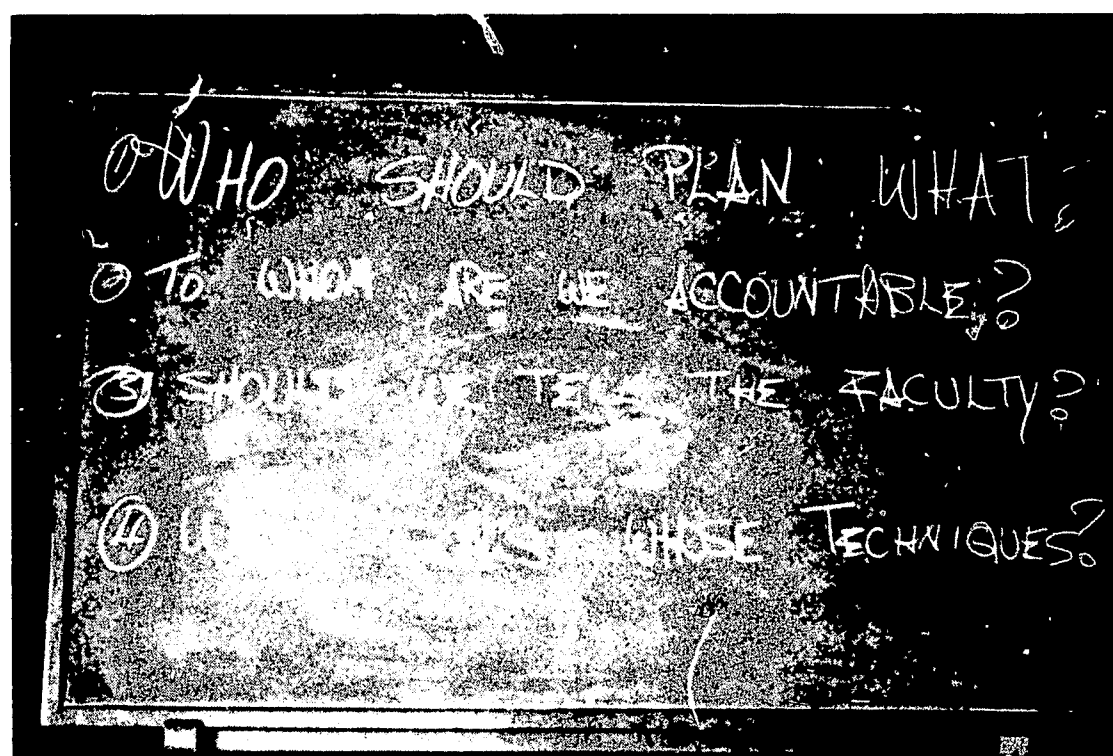 ① WHO SHOULD PLAN WHAT?
② TO WHOM ARE WE ACCOUNTABLE?
③ SHOULD WE TELL THE FACULTY?
④ WHOSE TECHNIQUES?